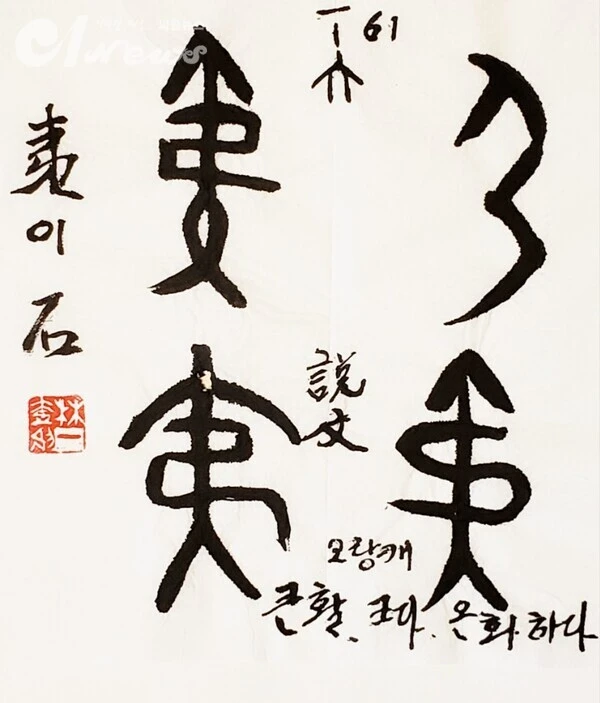 61
夷
夷
夷
說文
오랑캐
큰활. 크다. 온화하다
夷이
石